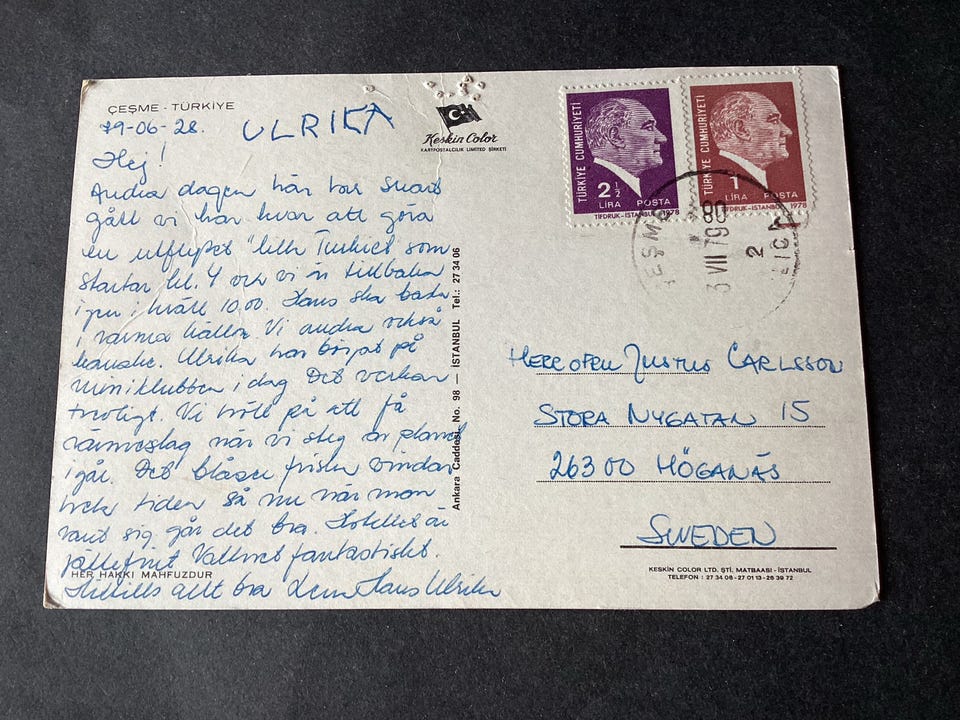 ÇEŞME - TÜRKİYE
79-06-28. ULRIKA
Hej!
Andra dagen här har snart
gått vi har kvar att göra
en utflykt "lilla Turkiet som
startar kl. 4 och vi är tillbaka
igen i kväll 10.00. Hans ska bada
i varma källor. Vi andra också
kanske. Ulrika har börjat på
miniklubben i dag Det verkar
trevligt. Vi höll på att få
värmeslag när vi steg av planet
igår. Det blåser friska vindar
hela tiden så nu när man
vant sig går det bra. Hotellet är
jättefint Vattnet fantastiskt.
HER HAKKI MAHFUZDUR
Hittills allt bra Hans Ulrika
Keskin Color
KARTPOSTALCILIK LIMITED ŞİRKETİ
Ankara Caddesi. No. 98 — İSTANBUL Tel.: 27 34 06
TÜRKİYE CUMHURİYETİ
2 1/2
LİRA POSTA
TİFDRUK-İSTANBUL 1978
TÜRKİYE CUMHURİYETİ
1
LİRA POSTA
TİFDRUK-İSTANBUL 1978
3 VII 79 08
2
Justus Carlsson
Stora Nygatan 15
26300 Höganäs
Sweden
KESKİN COLOR LTD. ŞTİ. MATBAASI - İSTANBUL
TELEFON : 27 34 06 - 27 01 13 - 26 39 72